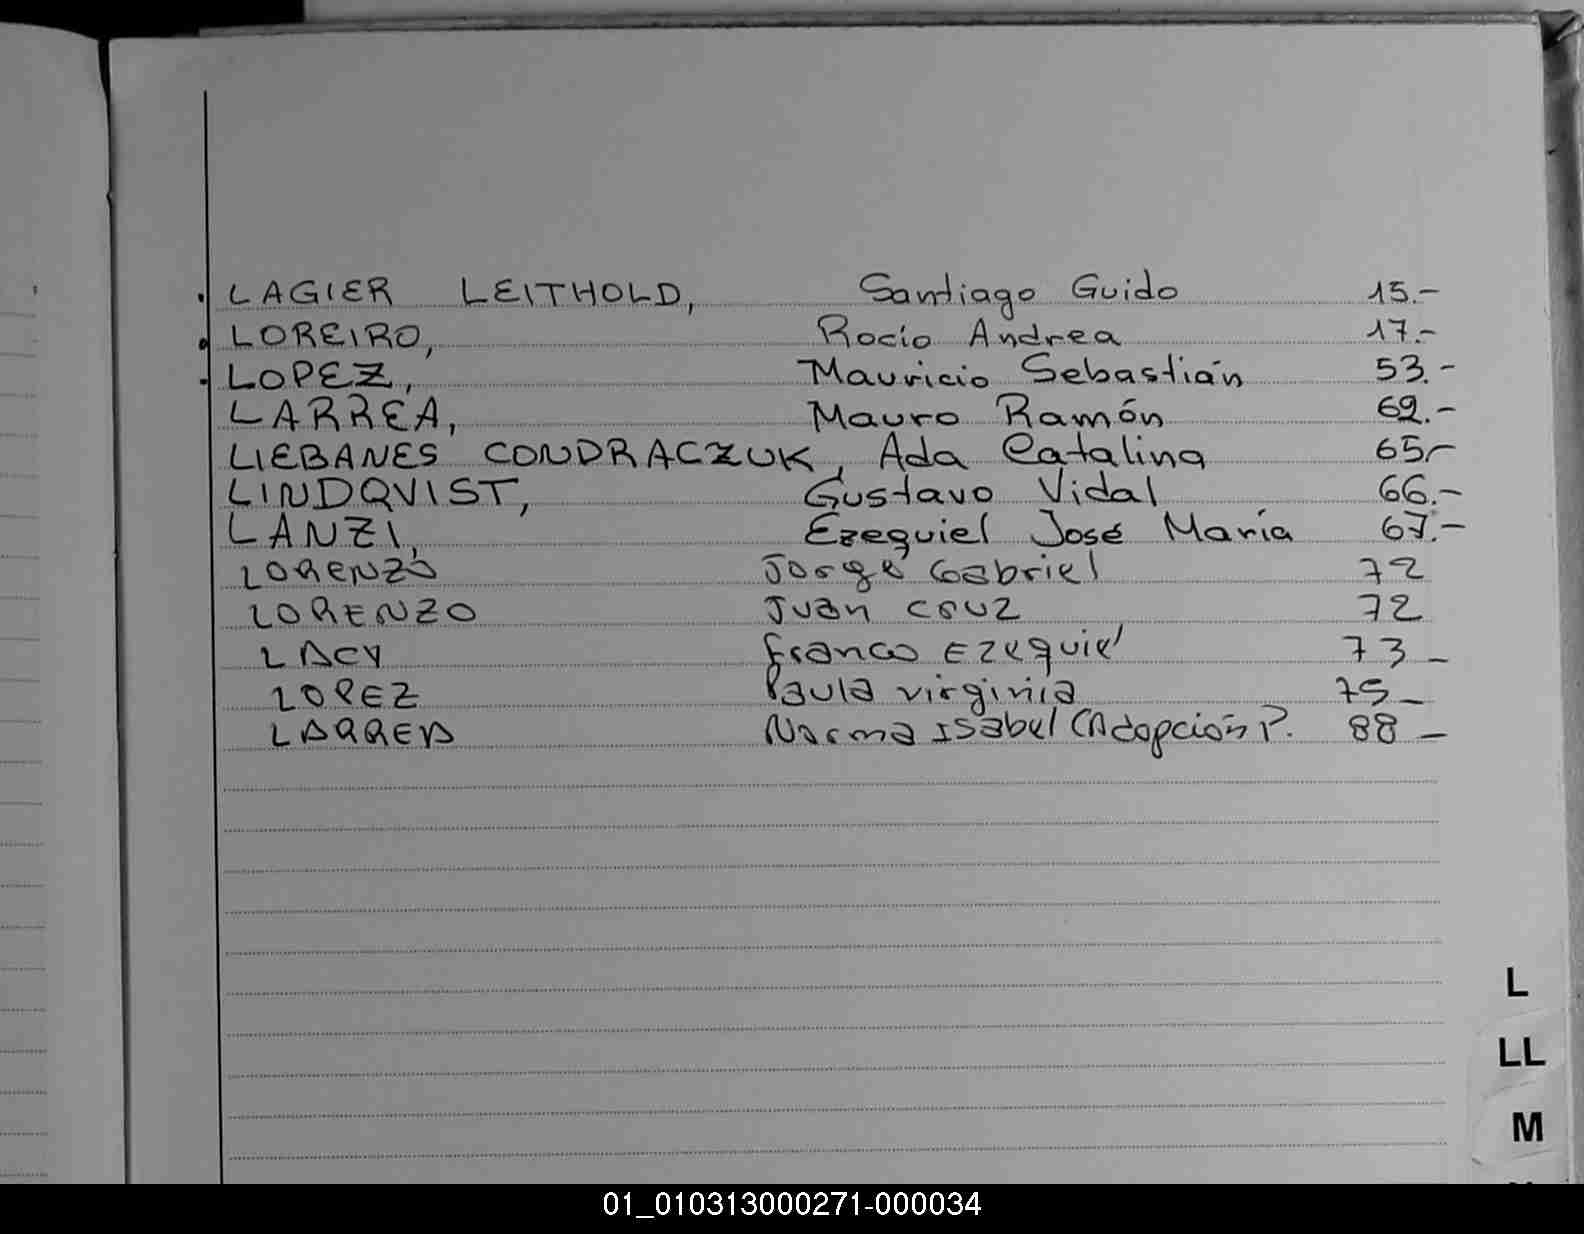 . LAGIER LEITHOLD, Santiago Guido 15.-
. LOREIRO, Rocío Andrea 17.-
. LOPEZ, Mauricio Sebastián 53.-
LARREA, Mauro Ramón 62.-
LIEBANES CONDRACZUK, Ada Catalina 65.-
LINDQVIST, Gustavo Vidal 66.-
LANZI, Ezequiel José María 67.-
LORENZO Jorge Gabriel 72
LORENZO Juan Cruz 72
LACY Franco Ezequiel 73 -
LOPEZ Paula virginia 75 -
LARREA Norma Isabel (Adopción P. 88 -
L
LL
M
01_010313000271-000034